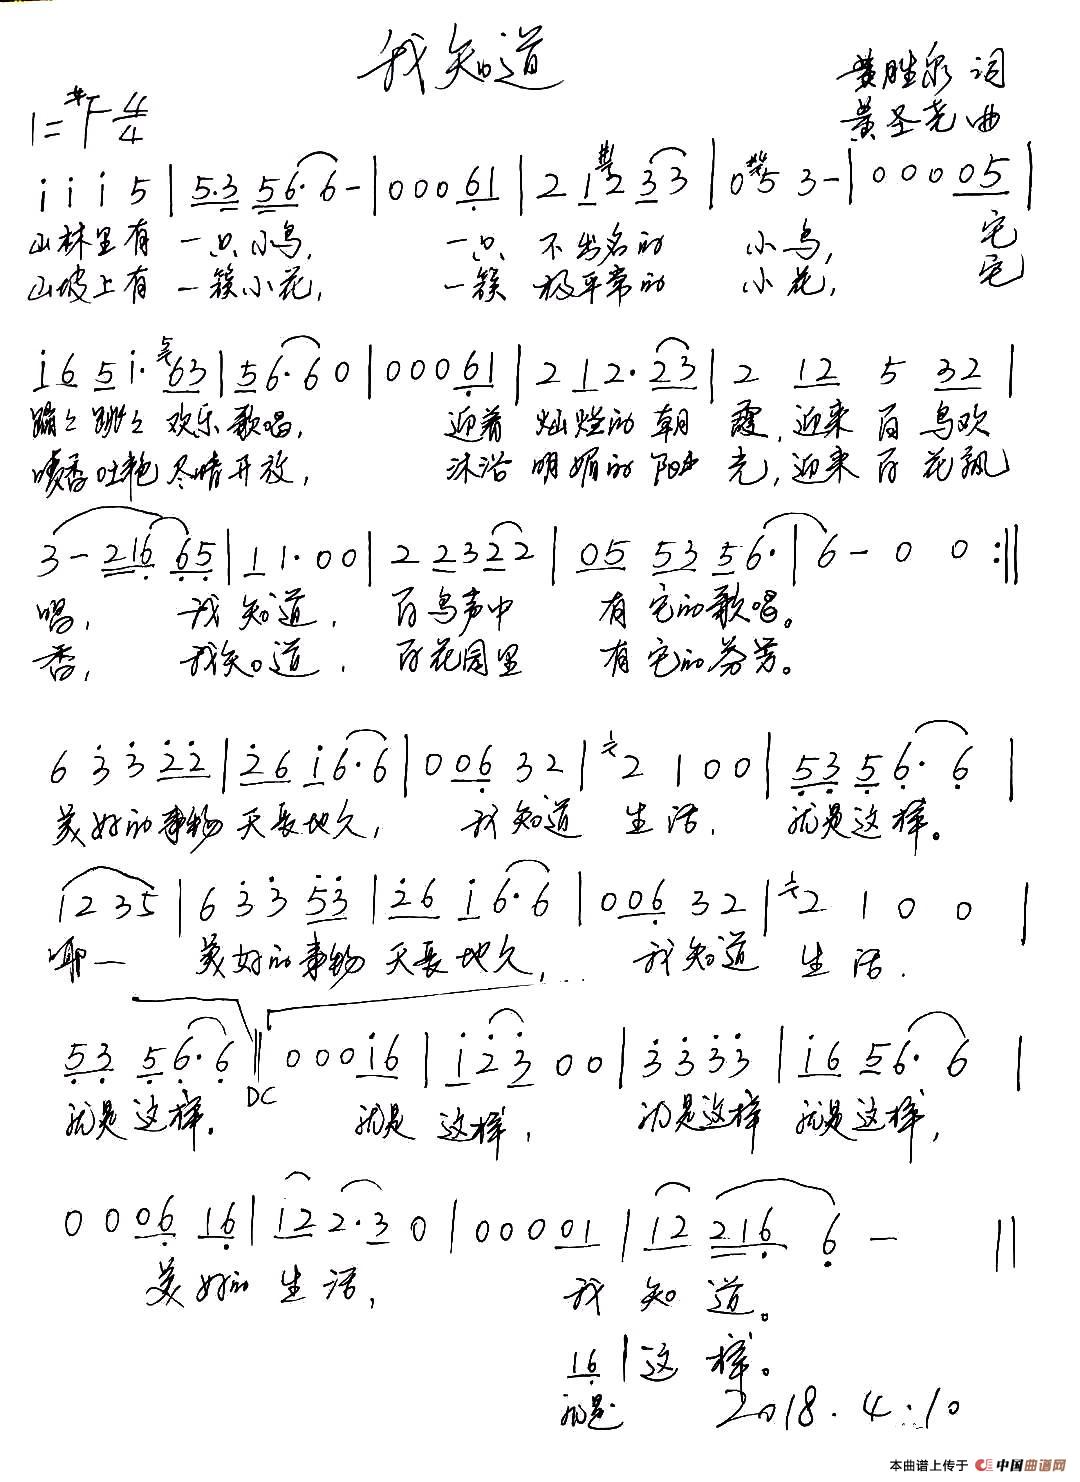 我知道
黄胜泉 词
1=#F 4/4
黄圣尧 曲
i i i 5 | 5·3 56·6- | 0 0 0 61 | 2 12 33 | 05 3- | 0 0 0 05 |
山林里有 一只小鸟, 一只 不出名的 小鸟, 它
山坡上有 一簇小花, 一簇 极平常的 小花, 它
i6 5i· 63 | 56·60 | 0 0 0 61 | 2 12·23 | 2 12 5 32 |
蹦々跳々欢乐歌唱, 迎着 灿烂的朝霞,迎来百鸟欢
喷香吐艳尽情开放, 沐浴 明媚的阳光,迎来百花飘
3- 216 65 | 11·00 | 2 2322 | 05 53 56· | 6- 0 0 :||
唱, 我知道, 百鸟声中 有它的歌唱。
香, 我知道, 百花园里 有它的芬芳。
6 3 3 22 | 26 i6·6 | 0 06 32 | 2 1 0 0 | 53 56· 6 |
美好的事物天长地久, 我知道 生活, 就是这样。
1235 | 6 3 3 53 | 26 i6·6 | 0 06 32 | 2 1 0 0 |
耶— 美好的事物天长地久, 我知道 生活,
53 56·6 || 0 0 0 i6 | i23 0 0 | 3 3 3 3 | i6 56· 6 |
DC
就是这样。 就是 这样, 就是这样 就是这样,
0 0 06 16 | 12 2·3 0 | 0 0 0 01 | 12 216 6 - ||
美好的 生活, 我 知 道。
16 | 这 样。
就是
2018.4.10
本曲谱上传于 中国曲谱网